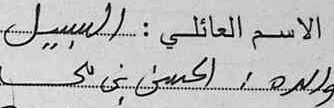 الاسم العائلي : السبيل
والده : الحسن بن